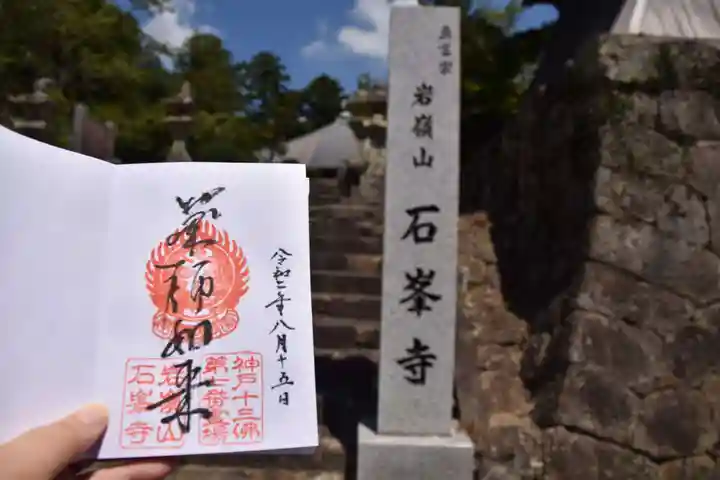 真言宗
岩嶺山
石峯寺
令和二年八月十五日
薬師如来
神戸十三佛
第七番霊場
岩嶺山
石峯寺